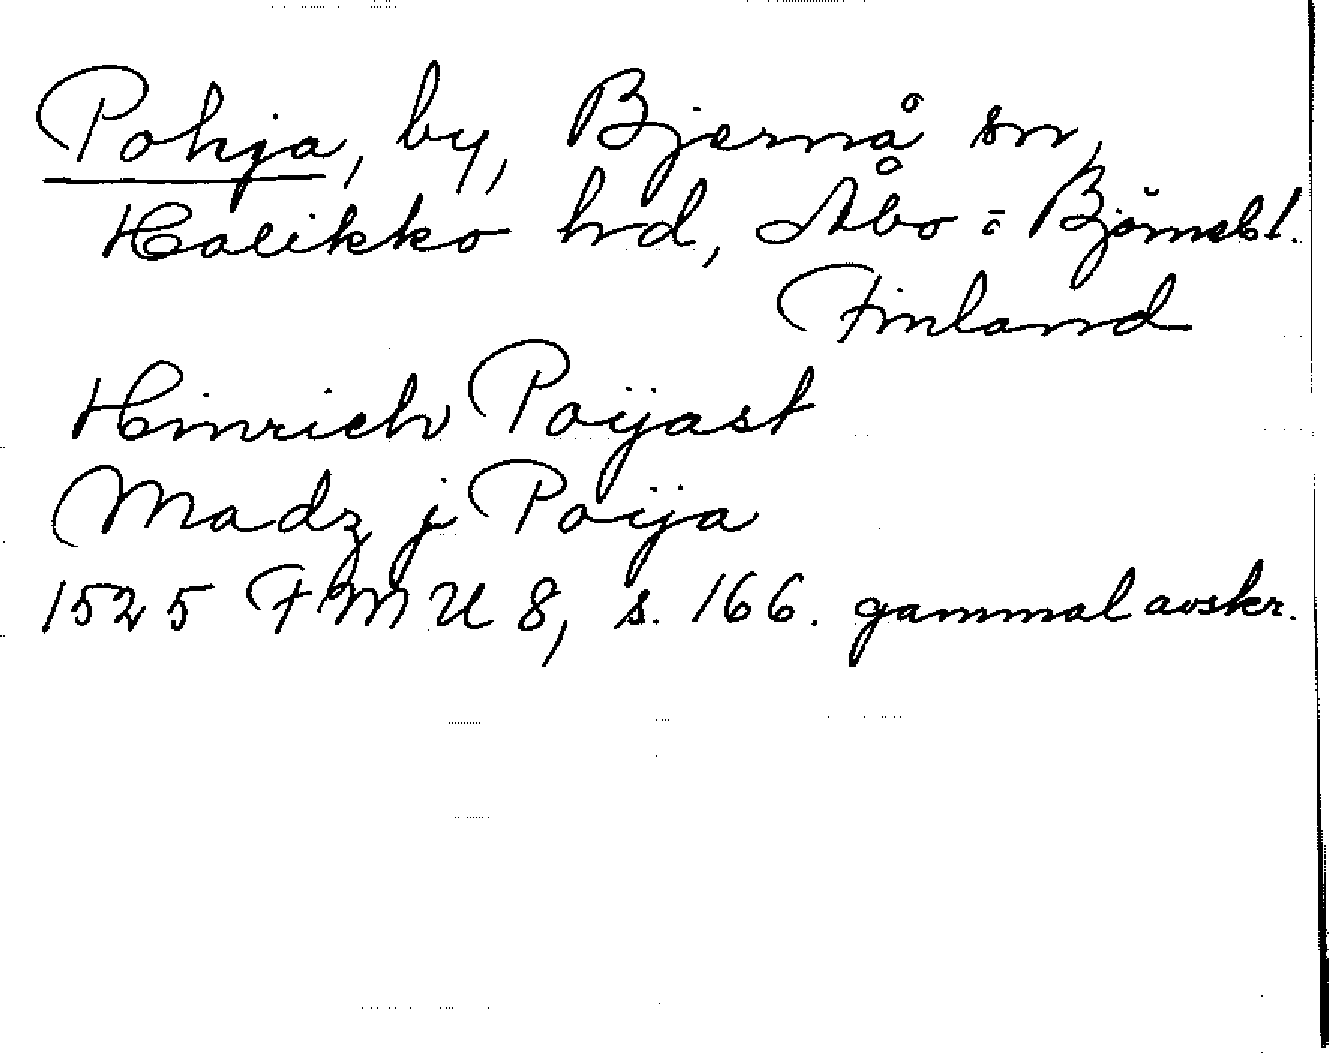 Pohja, by, Bjärnå sn,
Halikko hrd, Åbo = Björnebl.
Finland
Hinrich Poijast
Madz j Poija
1525 FMU 8, s. 166. gammal avskr.